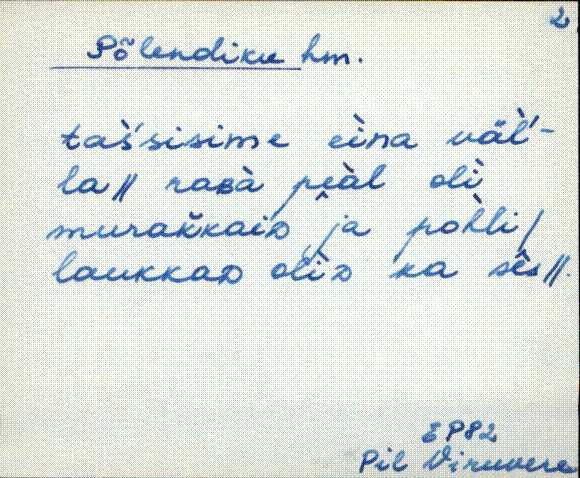 2
Põlendiku hm.
taśsisime èina väĺ-
la // raʙà pèal olì
murakkaiᴅ ja pohli/
laukkaᴅ olìᴅ ka sès //.
EP82
Pil Viruvere